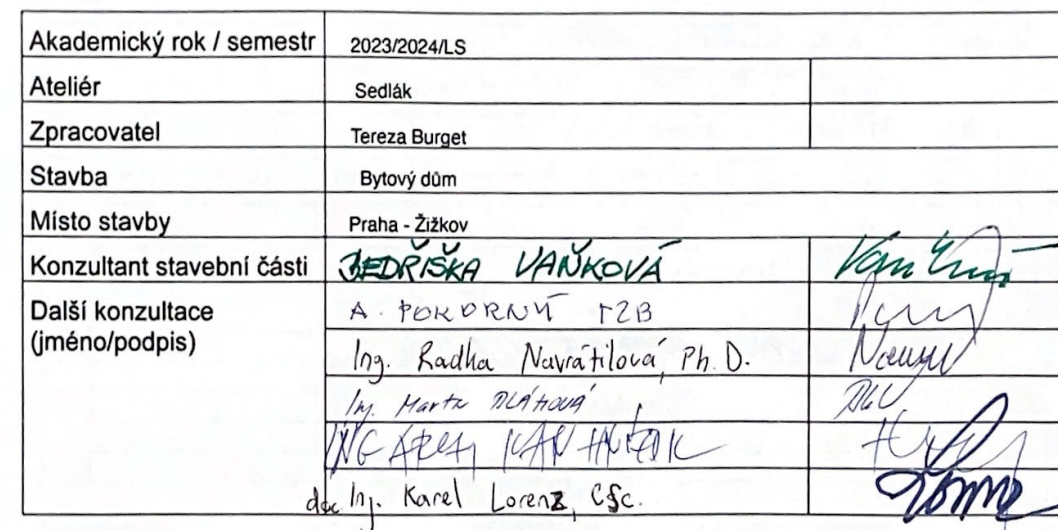 Akademický rok / semestr 2023/2024/LS
Ateliér Sedlák
Zpracovatel Tereza Burget
Stavba Bytový dům
Místo stavby Praha - Žižkov
Konzultant stavební části BEDŘIŠKA VAŇKOVÁ
Další konzultace A. POKORNÝ TZB
(jméno/podpis) Ing. Radka Navrátilová, Ph. D.
Ing. Marta BLÁHOVÁ
ING ARCH JAN HNÍZDIK
doc. Ing. Karel Lorenz, CSc.